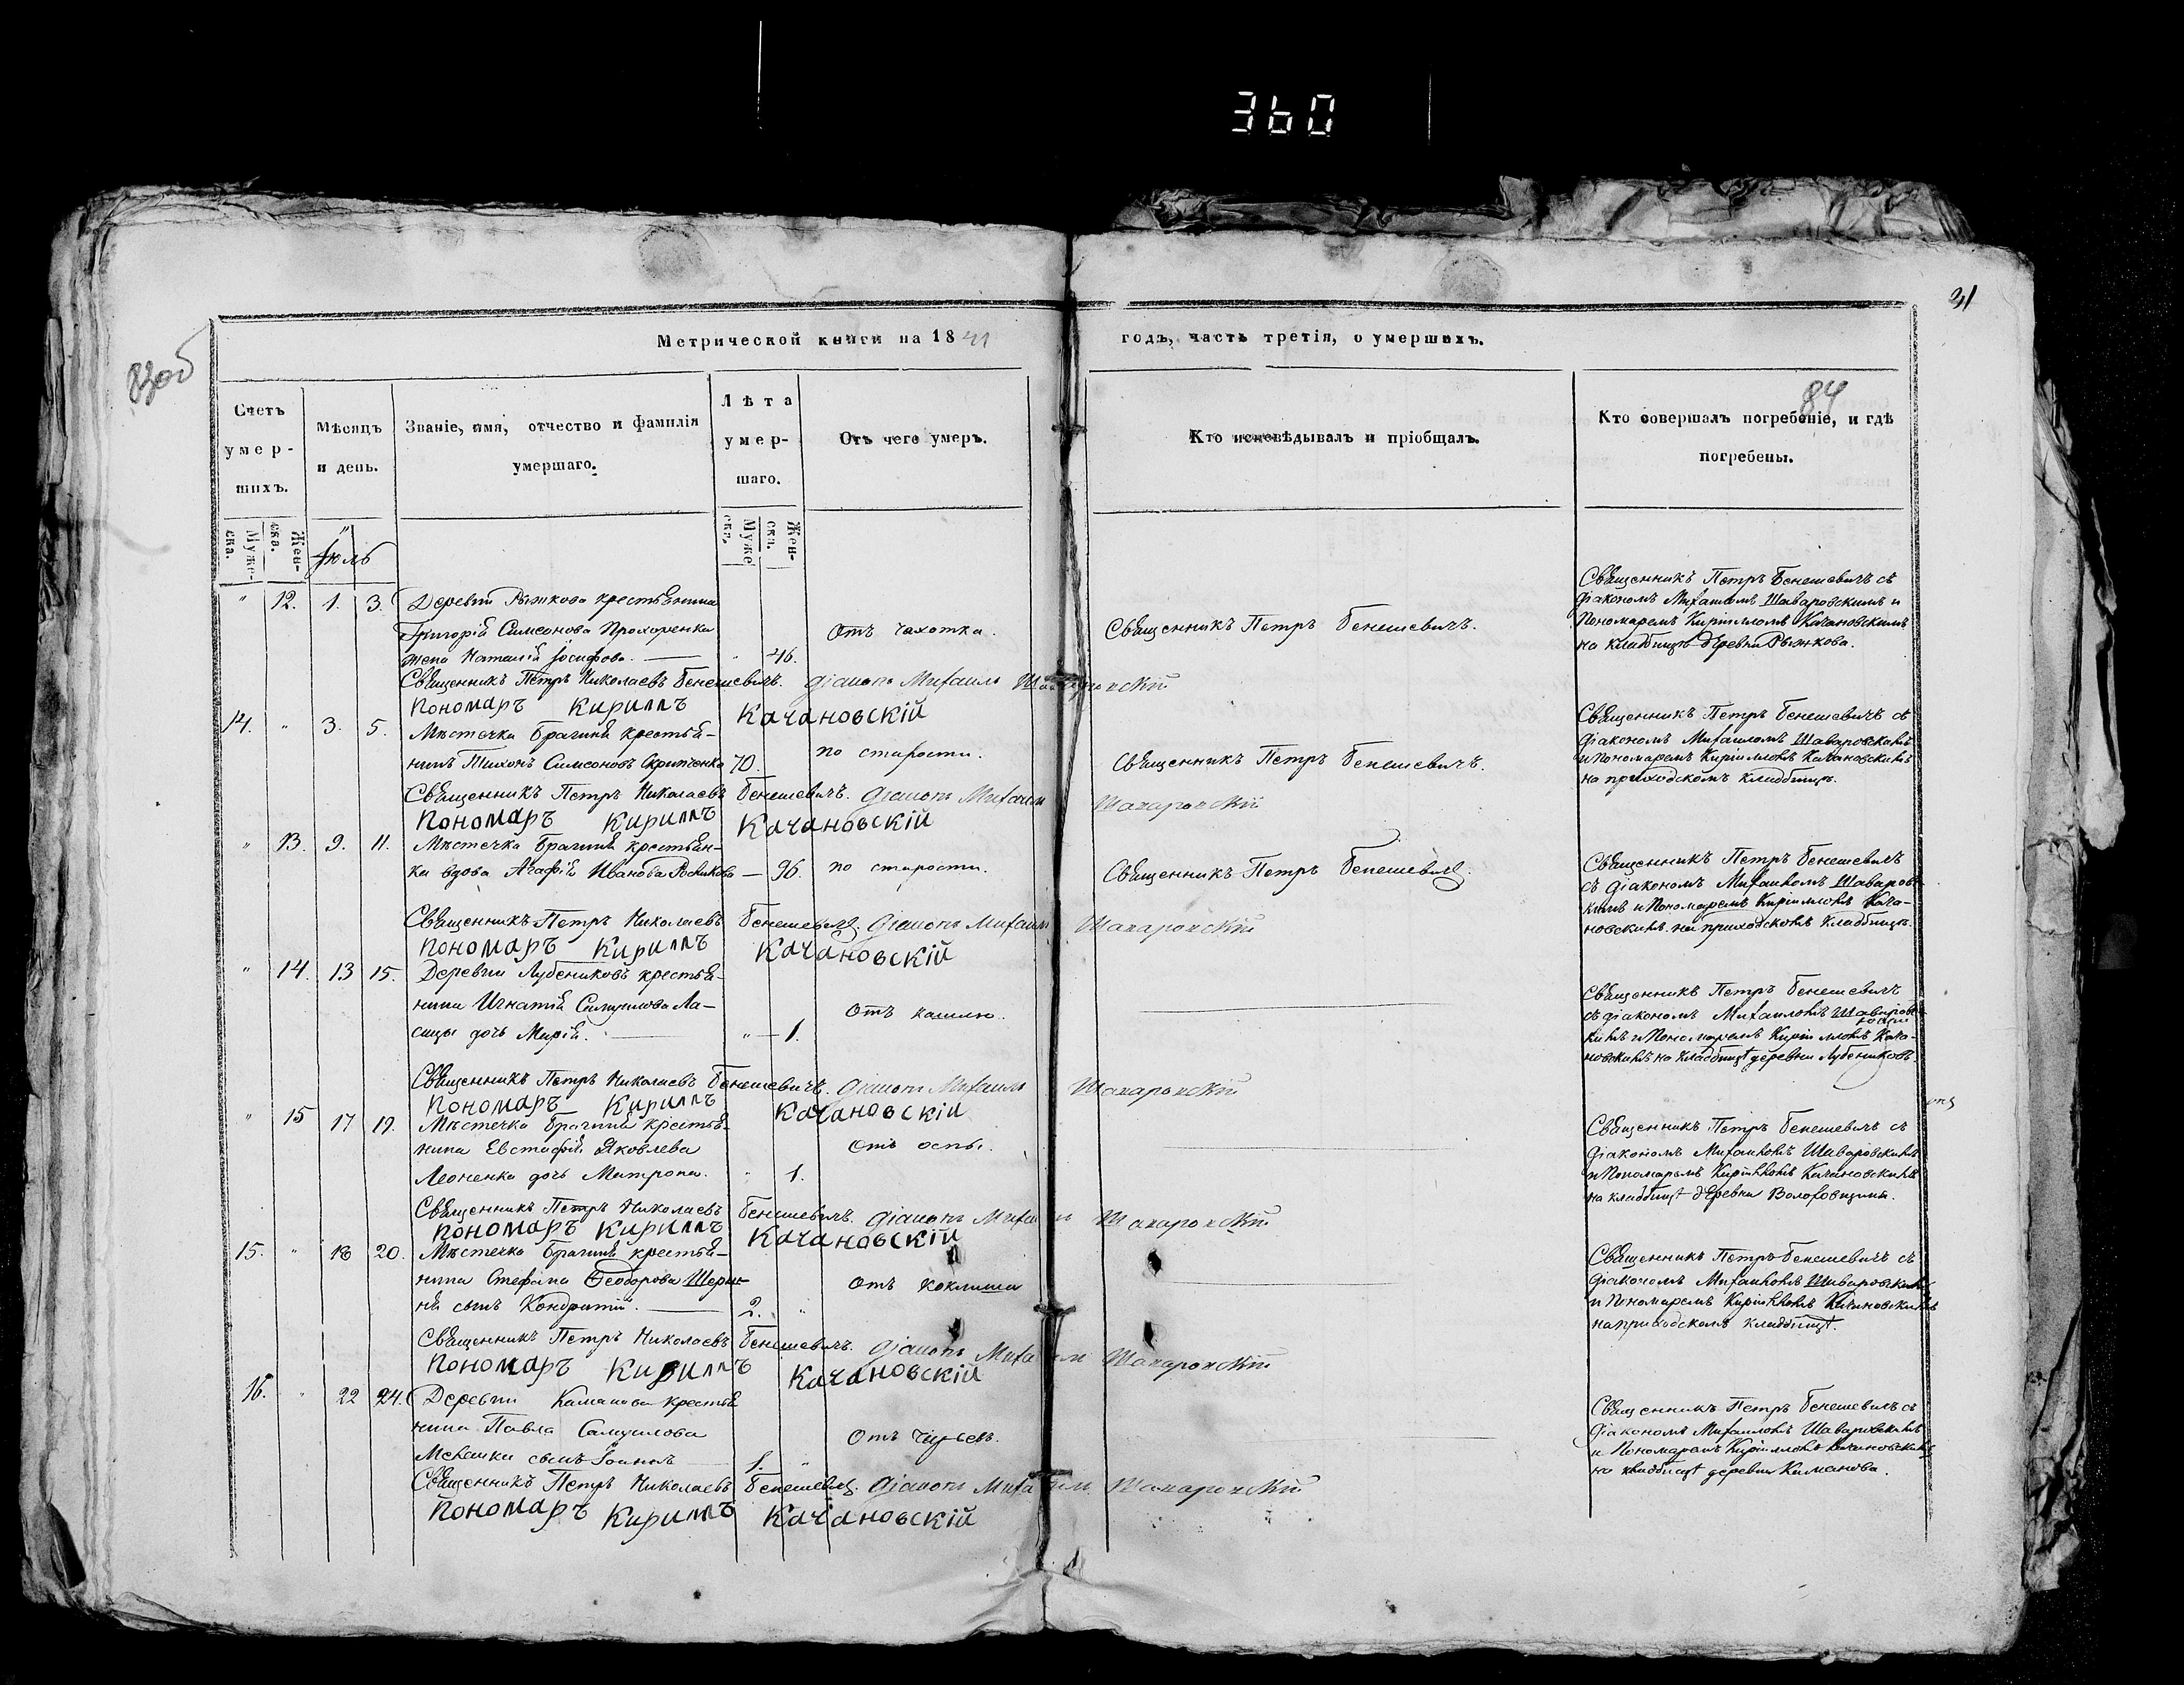 360
31
84
Метрической книги на 1841 годъ, часть третія, о умершихъ.
Счетъ умер-шихъ.
Мѣсяцъ и день.
Званіе, имя, отчество и фамилія умершаго.
Лѣта умер-шаго.
Отъ чего умеръ.
Кто исповѣдывалъ и пріобщалъ.
Кто совершалъ погребеніе, и гдѣ погребены.
Муже-ска. Жен-ска.
Муже ска. Жен-ска.
Іюль
" 12. 1. 3. Деревни Рыжкова крестьянина
Григорія Симеонова Прохоренка
жена Наталія Іосифова. — " 46.
Отъ чахотки.
Священникъ Петръ Бенешевичъ.
Священникъ Петръ Бенешевичъ съ
діакономъ Михаиломъ Шаваровскимъ и
Пономаремъ Кирилломъ Качановскимъ
на кладбищѣ деревни Рыжкова.
Священникъ Петръ Николаевъ Бенешевичъ. Діаконъ Михаилъ Шаваровскій
Пономаръ Кириллъ Качановскій
14. " 3. 5. Мѣстечка Брагиня крестья-
нинъ Тихонъ Симеоновъ 70.
по старости.
Священникъ Петръ Бенешевичъ.
Священникъ Петръ Бенешевичъ съ
діакономъ Михаиломъ Шаваровскимъ
и Пономаремъ Кирилломъ Качановскимъ
на приходскомъ кладбищѣ.
Священникъ Петръ Николаевъ Бенешевичъ. Діаконъ Михаилъ Шаваровскій
Пономаръ Кириллъ Качановскій
" 13. 9. 11. Мѣстечка Брагиня крестьян-
ка вдова Агафія Иванова — 96.
по старости.
Священникъ Петръ Бенешевичъ.
Священникъ Петръ Бенешевичъ
съ діакономъ Михаиломъ Шаваровс-
кимъ и Пономаремъ Кирилломъ Кача-
новскимъ на приходскомъ кладбищѣ.
Священникъ Петръ Николаевъ Бенешевичъ. Діаконъ Михаилъ Шаваровскій
Пономаръ Кириллъ Качановскій
" 14. 13 15. Деревни Лубениковъ крестья-
нина Игнатія Самуилова Ла-
сицы дочь Марія. — " — 1.
Отъ кашлю.
Священникъ Петръ Бенешевичъ
съ діакономъ Михаиломъ Шаваровс-
кимъ и Пономаремъ Кирилломъ Кача-
новскимъ на кладбищѣ деревни Лубениковъ.
Священникъ Петръ Николаевъ Бенешевичъ. Діаконъ Михаилъ Шаваровскій
Пономаръ Кириллъ Качановскій
" 15 17 19. Мѣстечка Брагиня крестья-
нина Евстафія Яковлева
Леоненка дочь Матрона. " 1.
Отъ оспы.
Священникъ Петръ Бенешевичъ съ
діакономъ Михаиломъ Шаваровскимъ
и Пономаремъ Кирилломъ Качановскимъ
на кладбищѣ деревни Волоховщины.
Священникъ Петръ Николаевъ Бенешевичъ. Діаконъ Михаилъ Шаваровскій
Пономаръ Кириллъ Качановскій
15. " 18 20. Мѣстечка Брагиня крестья-
нина Стефана Ѳеодорова
сынъ Кондратій. — 2. "
Отъ коклюша
Священникъ Петръ Бенешевичъ съ
діакономъ Михаиломъ Шаваровскимъ
и Пономаремъ Кирилломъ Качановскимъ
на приходскомъ кладбищѣ.
Священникъ Петръ Николаевъ Бенешевичъ. Діаконъ Михаилъ Шаваровскій
Пономаръ Кириллъ Качановскій
16. " 22 24. Деревни Каманова крестья
нина Павла Самуилова
сынъ Іоаннъ — 1. "
Отъ чирьевъ.
Священникъ Петръ Бенешевичъ съ
діакономъ Михаиломъ Шаваровскимъ
и Пономаремъ Кирилломъ Качановскимъ
на кладбищѣ деревни Каманова.
Священникъ Петръ Николаевъ Бенешевичъ. Діаконъ Михаилъ Шаваровскій
Пономаръ Кириллъ Качановскій